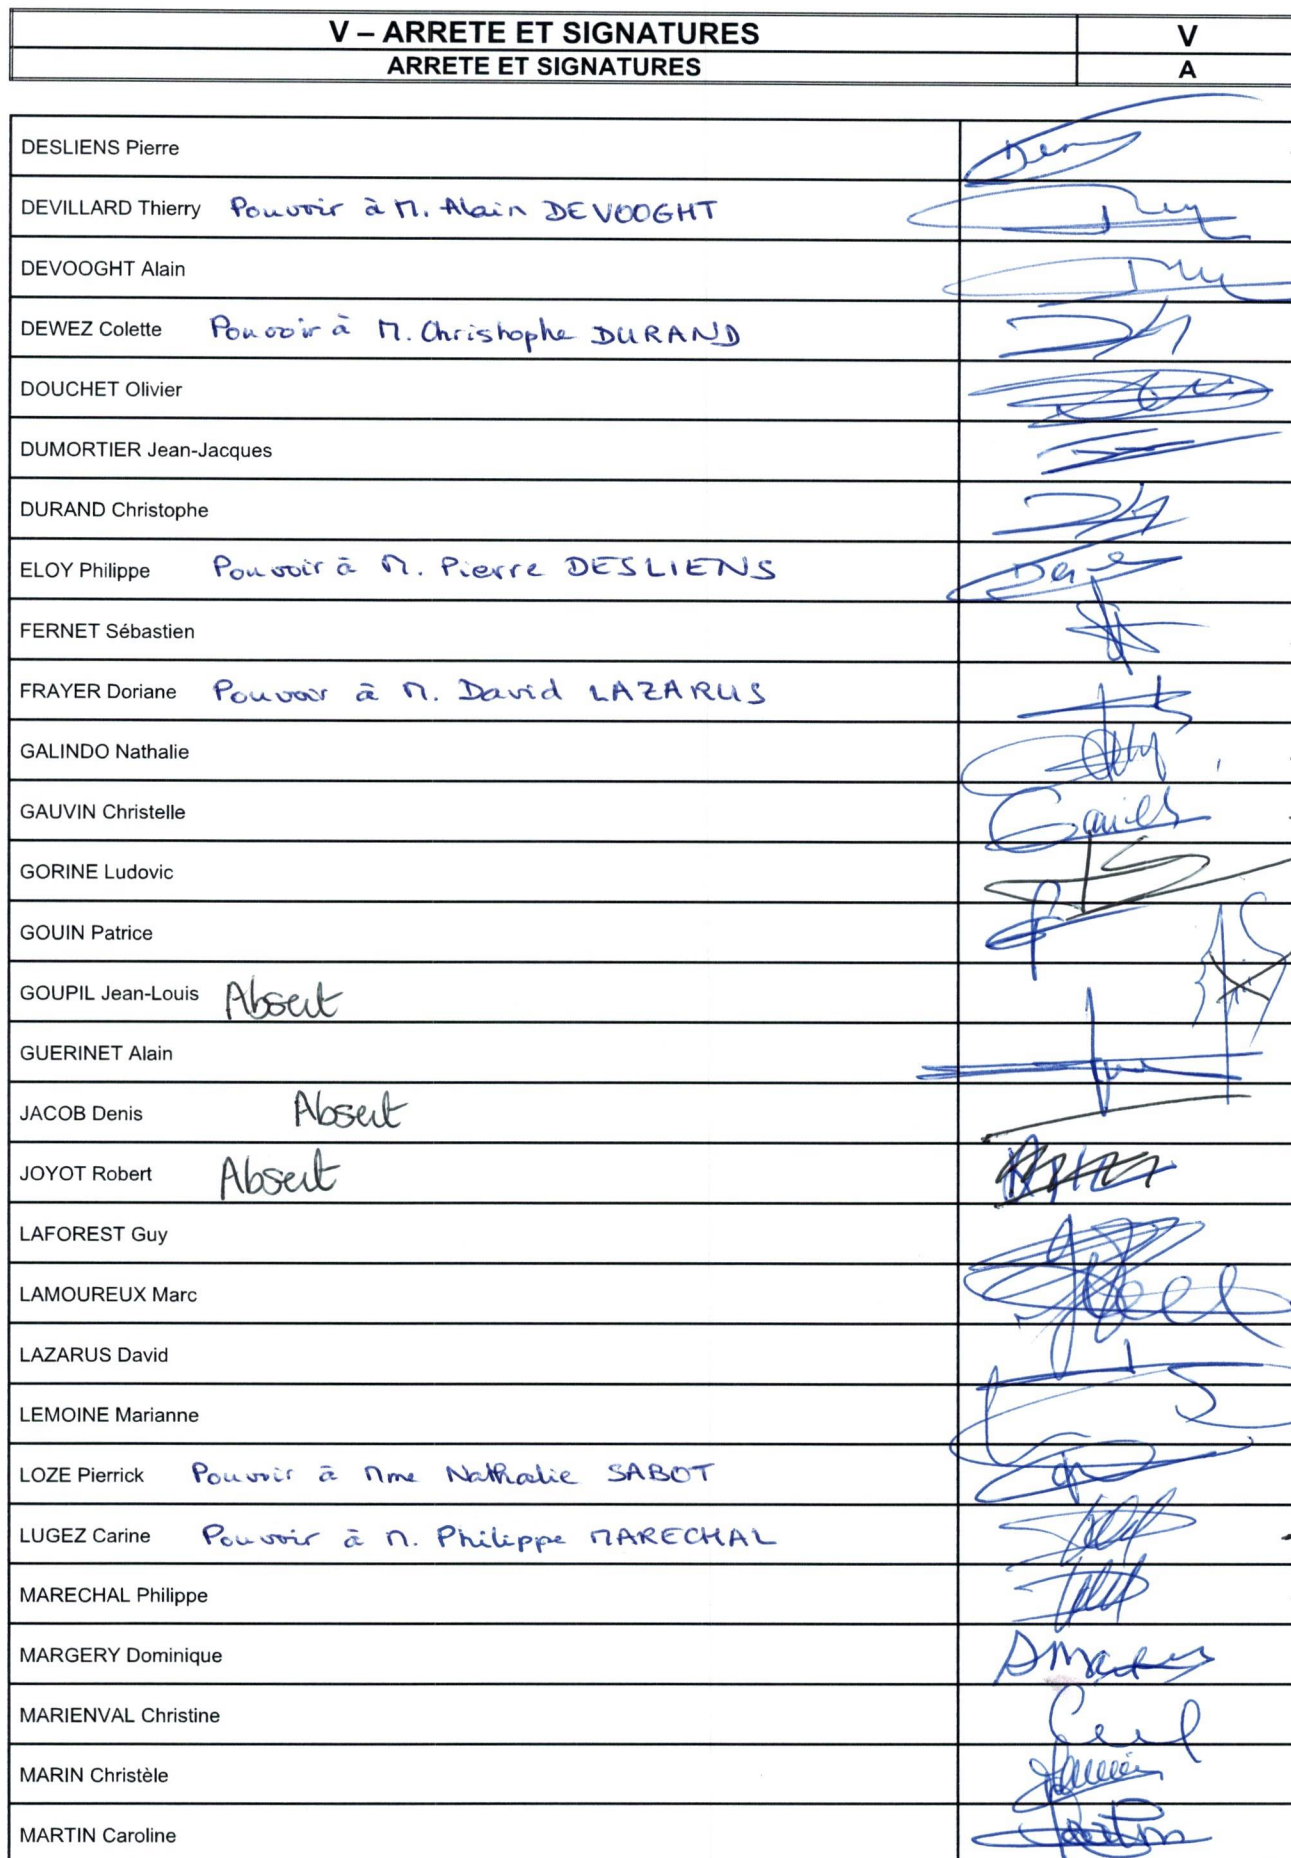 V – ARRETE ET SIGNATURES V
ARRETE ET SIGNATURES A
DESLIENS Pierre
DEVILLARD Thierry Pouvoir à M. Alain DEVOOGHT
DEVOOGHT Alain
DEWEZ Colette Pouvoir à M. Christophe DURAND
DOUCHET Olivier
DUMORTIER Jean-Jacques
DURAND Christophe
ELOY Philippe Pouvoir à M. Pierre DESLIENS
FERNET Sébastien
FRAYER Doriane Pouvoir à M. David LAZARUS
GALINDO Nathalie
GAUVIN Christelle
GORINE Ludovic
GOUIN Patrice
GOUPIL Jean-Louis Absent
GUERINET Alain
JACOB Denis Absent
JOYOT Robert Absent
LAFOREST Guy
LAMOUREUX Marc
LAZARUS David
LEMOINE Marianne
LOZE Pierrick Pouvoir à Mme Nathalie SABOT
LUGEZ Carine Pouvoir à M. Philippe MARECHAL
MARECHAL Philippe
MARGERY Dominique
MARIENVAL Christine
MARIN Christèle
MARTIN Caroline